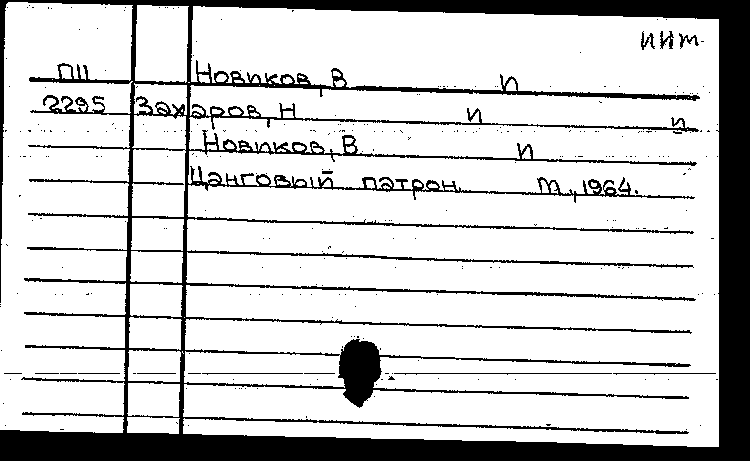 ИИТ
П11 Новиков, В И
2295 Захаров, Н И И
Новиков, В И
Цанговый патрон М., 1964.